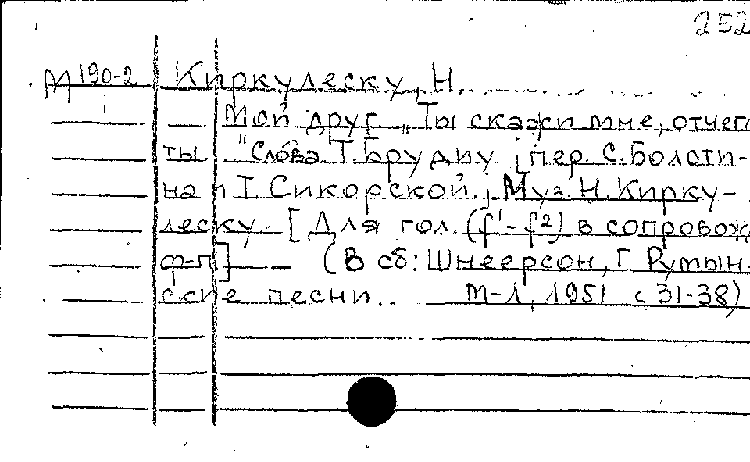 252
М 190-2 Киркулеску, Н.
Мой друг „Ты скажи мне, отчего
ты ..." Слова Т. Брудиу ; пер С. Болоти-
на и Т. Сикорской. ; Муз. Н. Кирку-
леску. [Для гол. (f¹-f²) в сопровожд
ф-п] (В сб: Шнеерсон, Г. Румын-
ские песни.. М-Л, 1951 с 31-38)